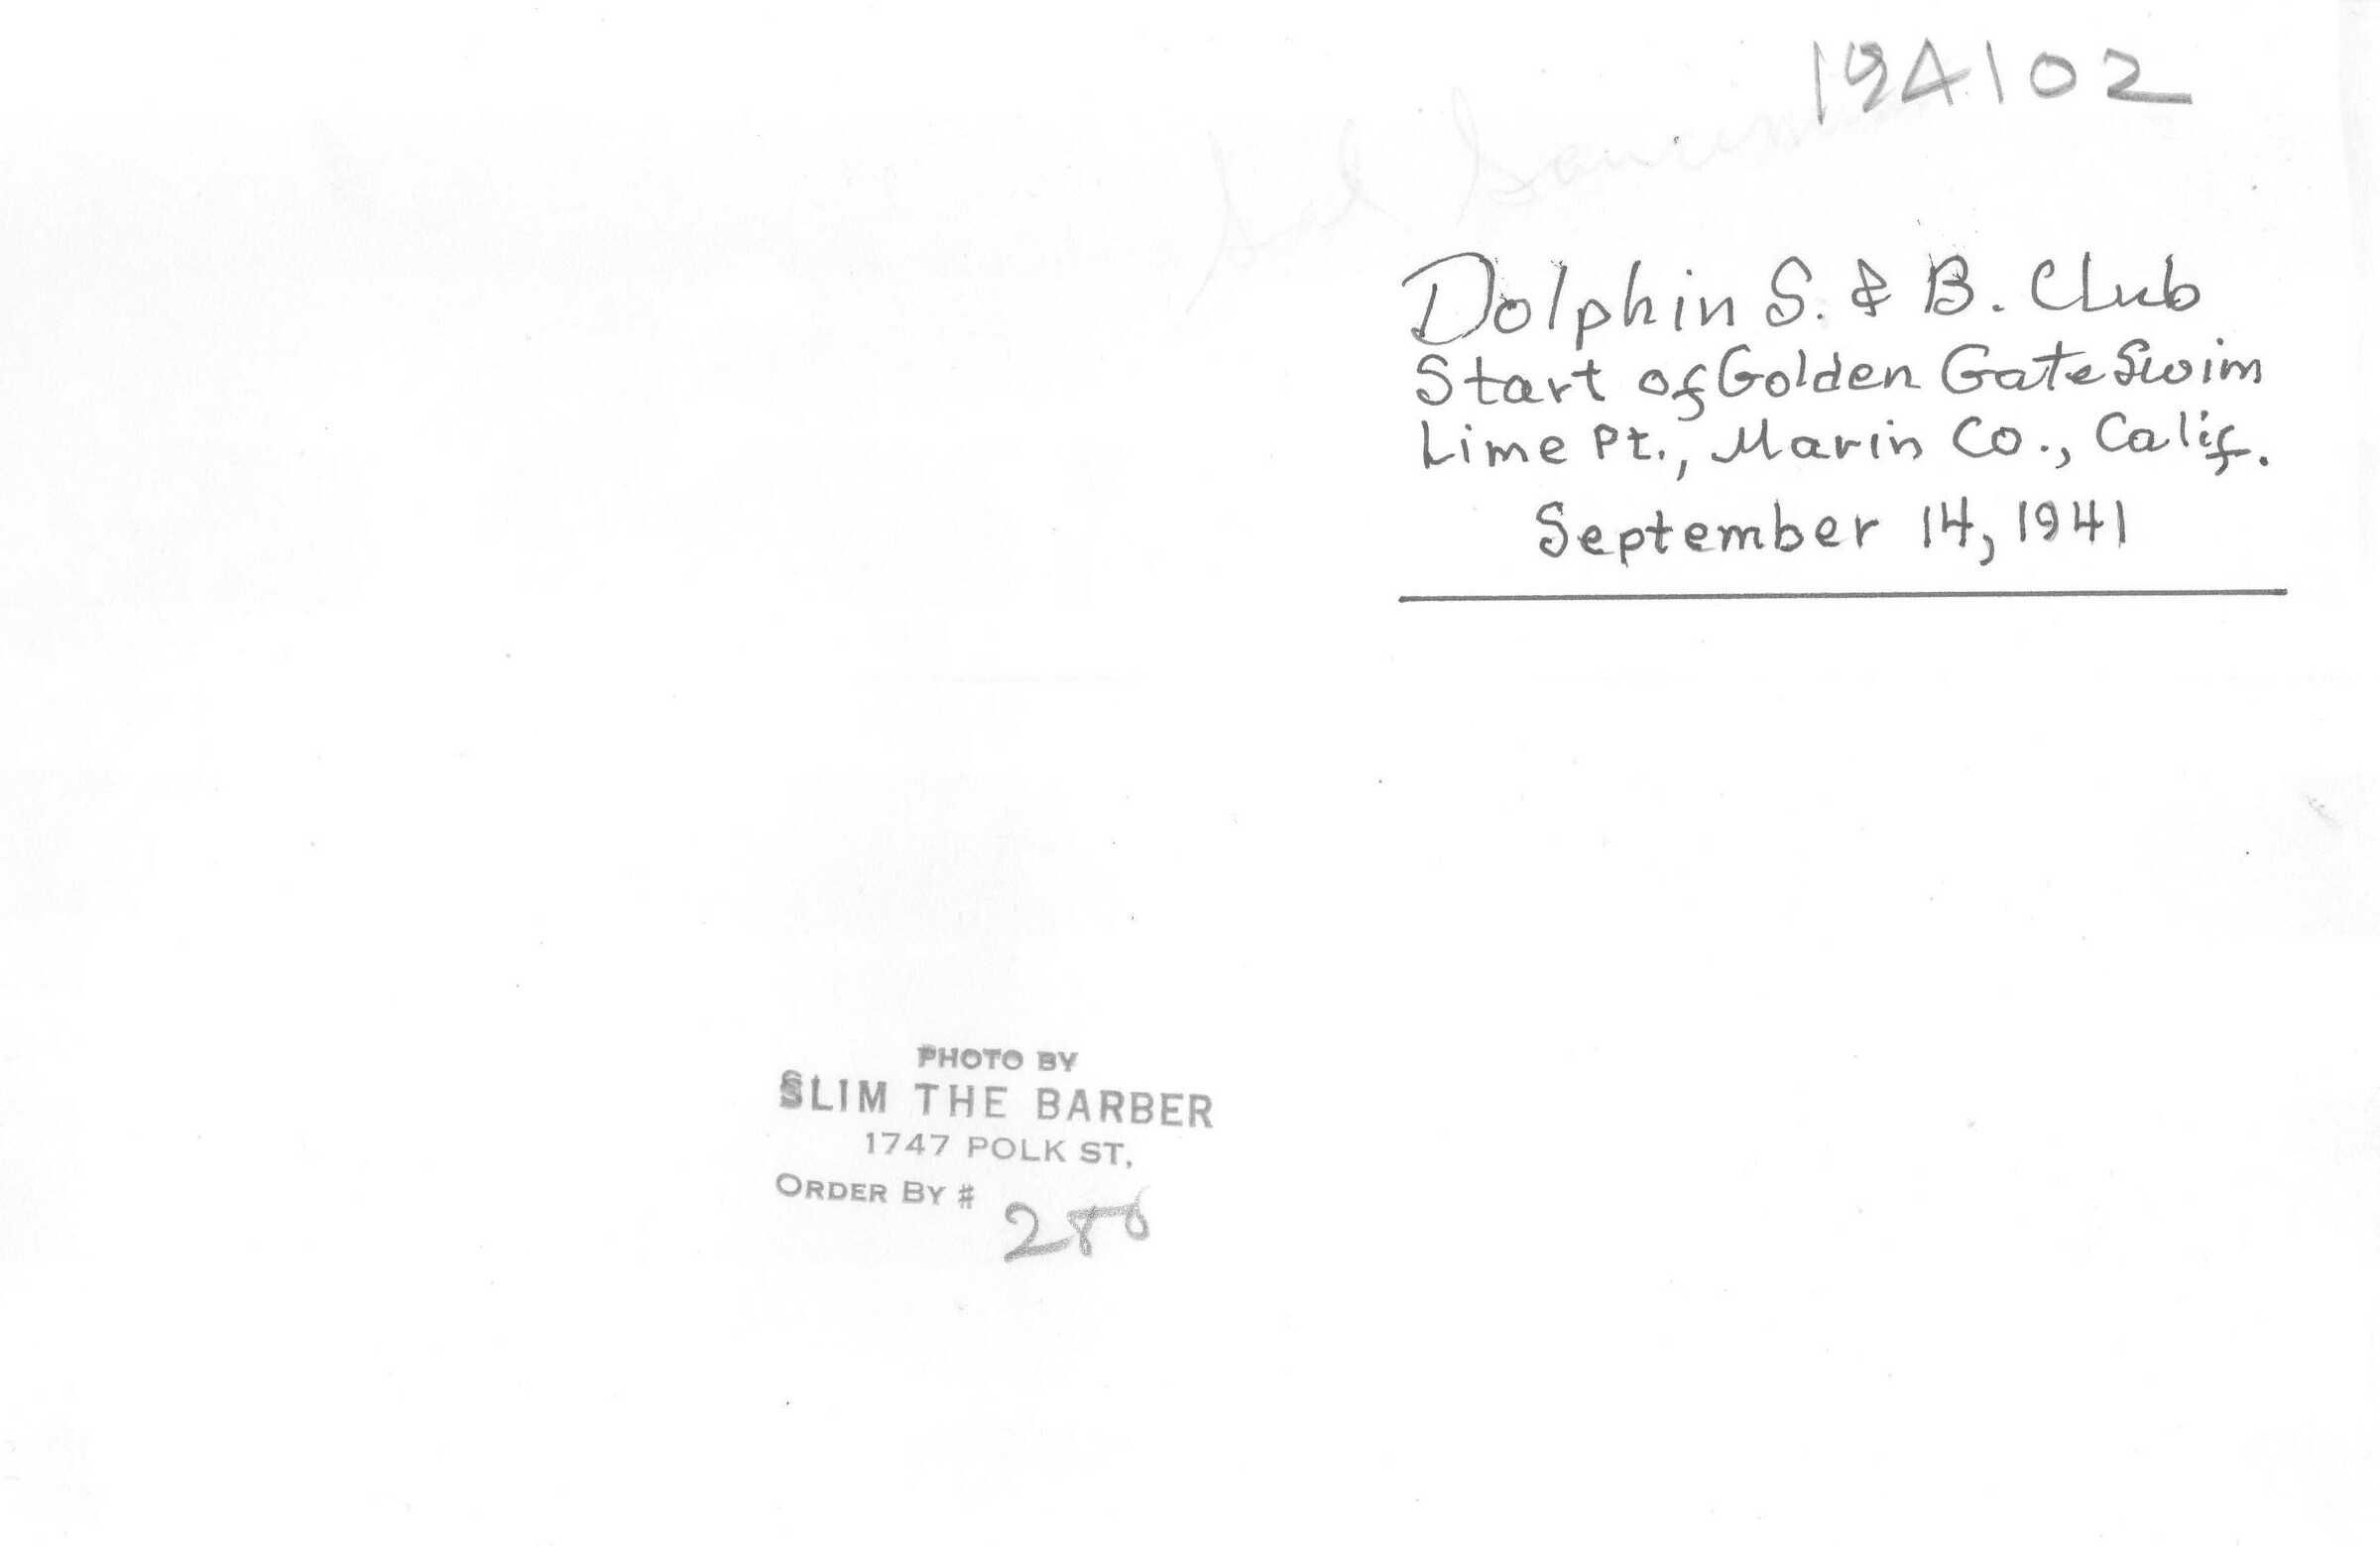 194102
Dolphin S. & B. Club
Start of Golden Gate Swim
Lime Pt., Marin Co., Calif.
September 14, 1941
PHOTO BY
SLIM THE BARBER
1747 POLK ST,
ORDER BY #